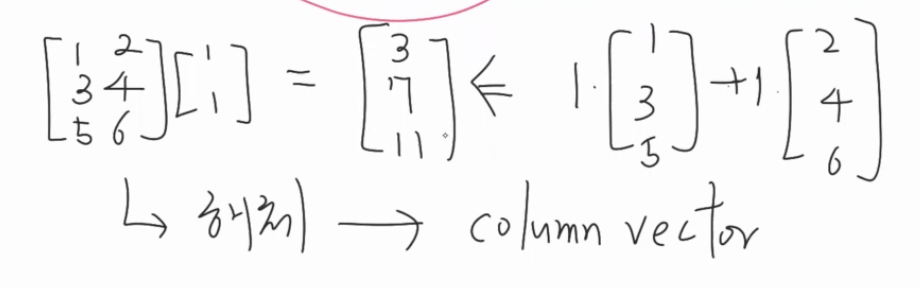 [1 2 / 3 4 / 5 6] [1 / 1] = [3 / 7 / 11] ⇐ 1·[1 / 3 / 5] + 1·[2 / 4 / 6]
↳ 해체 → column vector